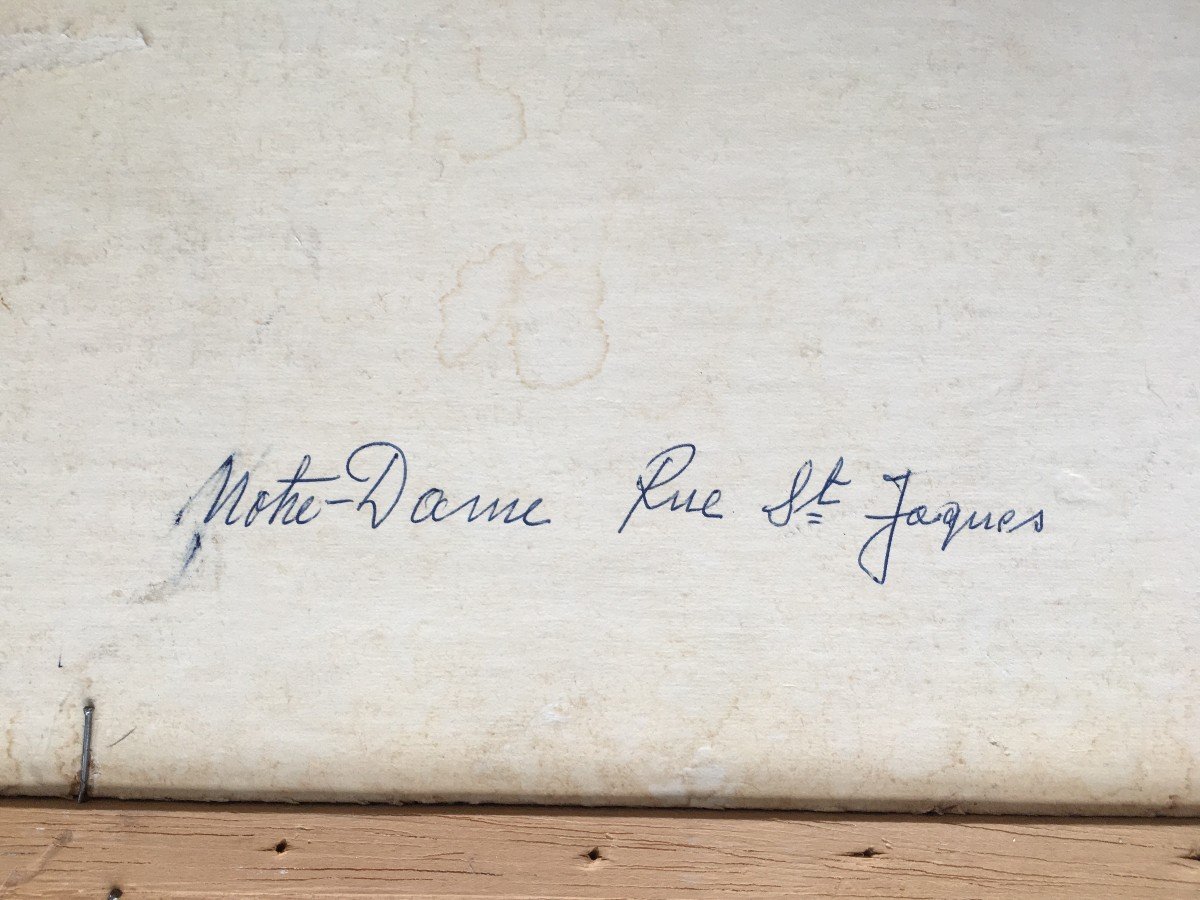 Notre-Dame Rue St Jaques